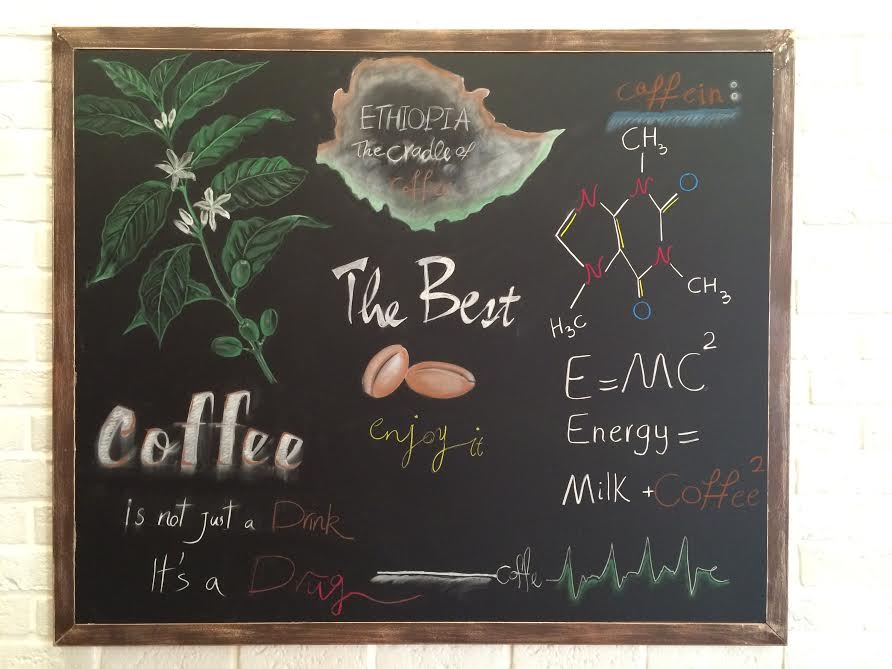 ETHIOPIA
The cradle of
Coffee
caffein:
CH3
N
N
O
N
N
O
CH3
H3C
The Best
enjoy it
E=MC2
Energy=
Milk +Coffee2
Coffee
is not just a Drink
It's a Drug
coffe